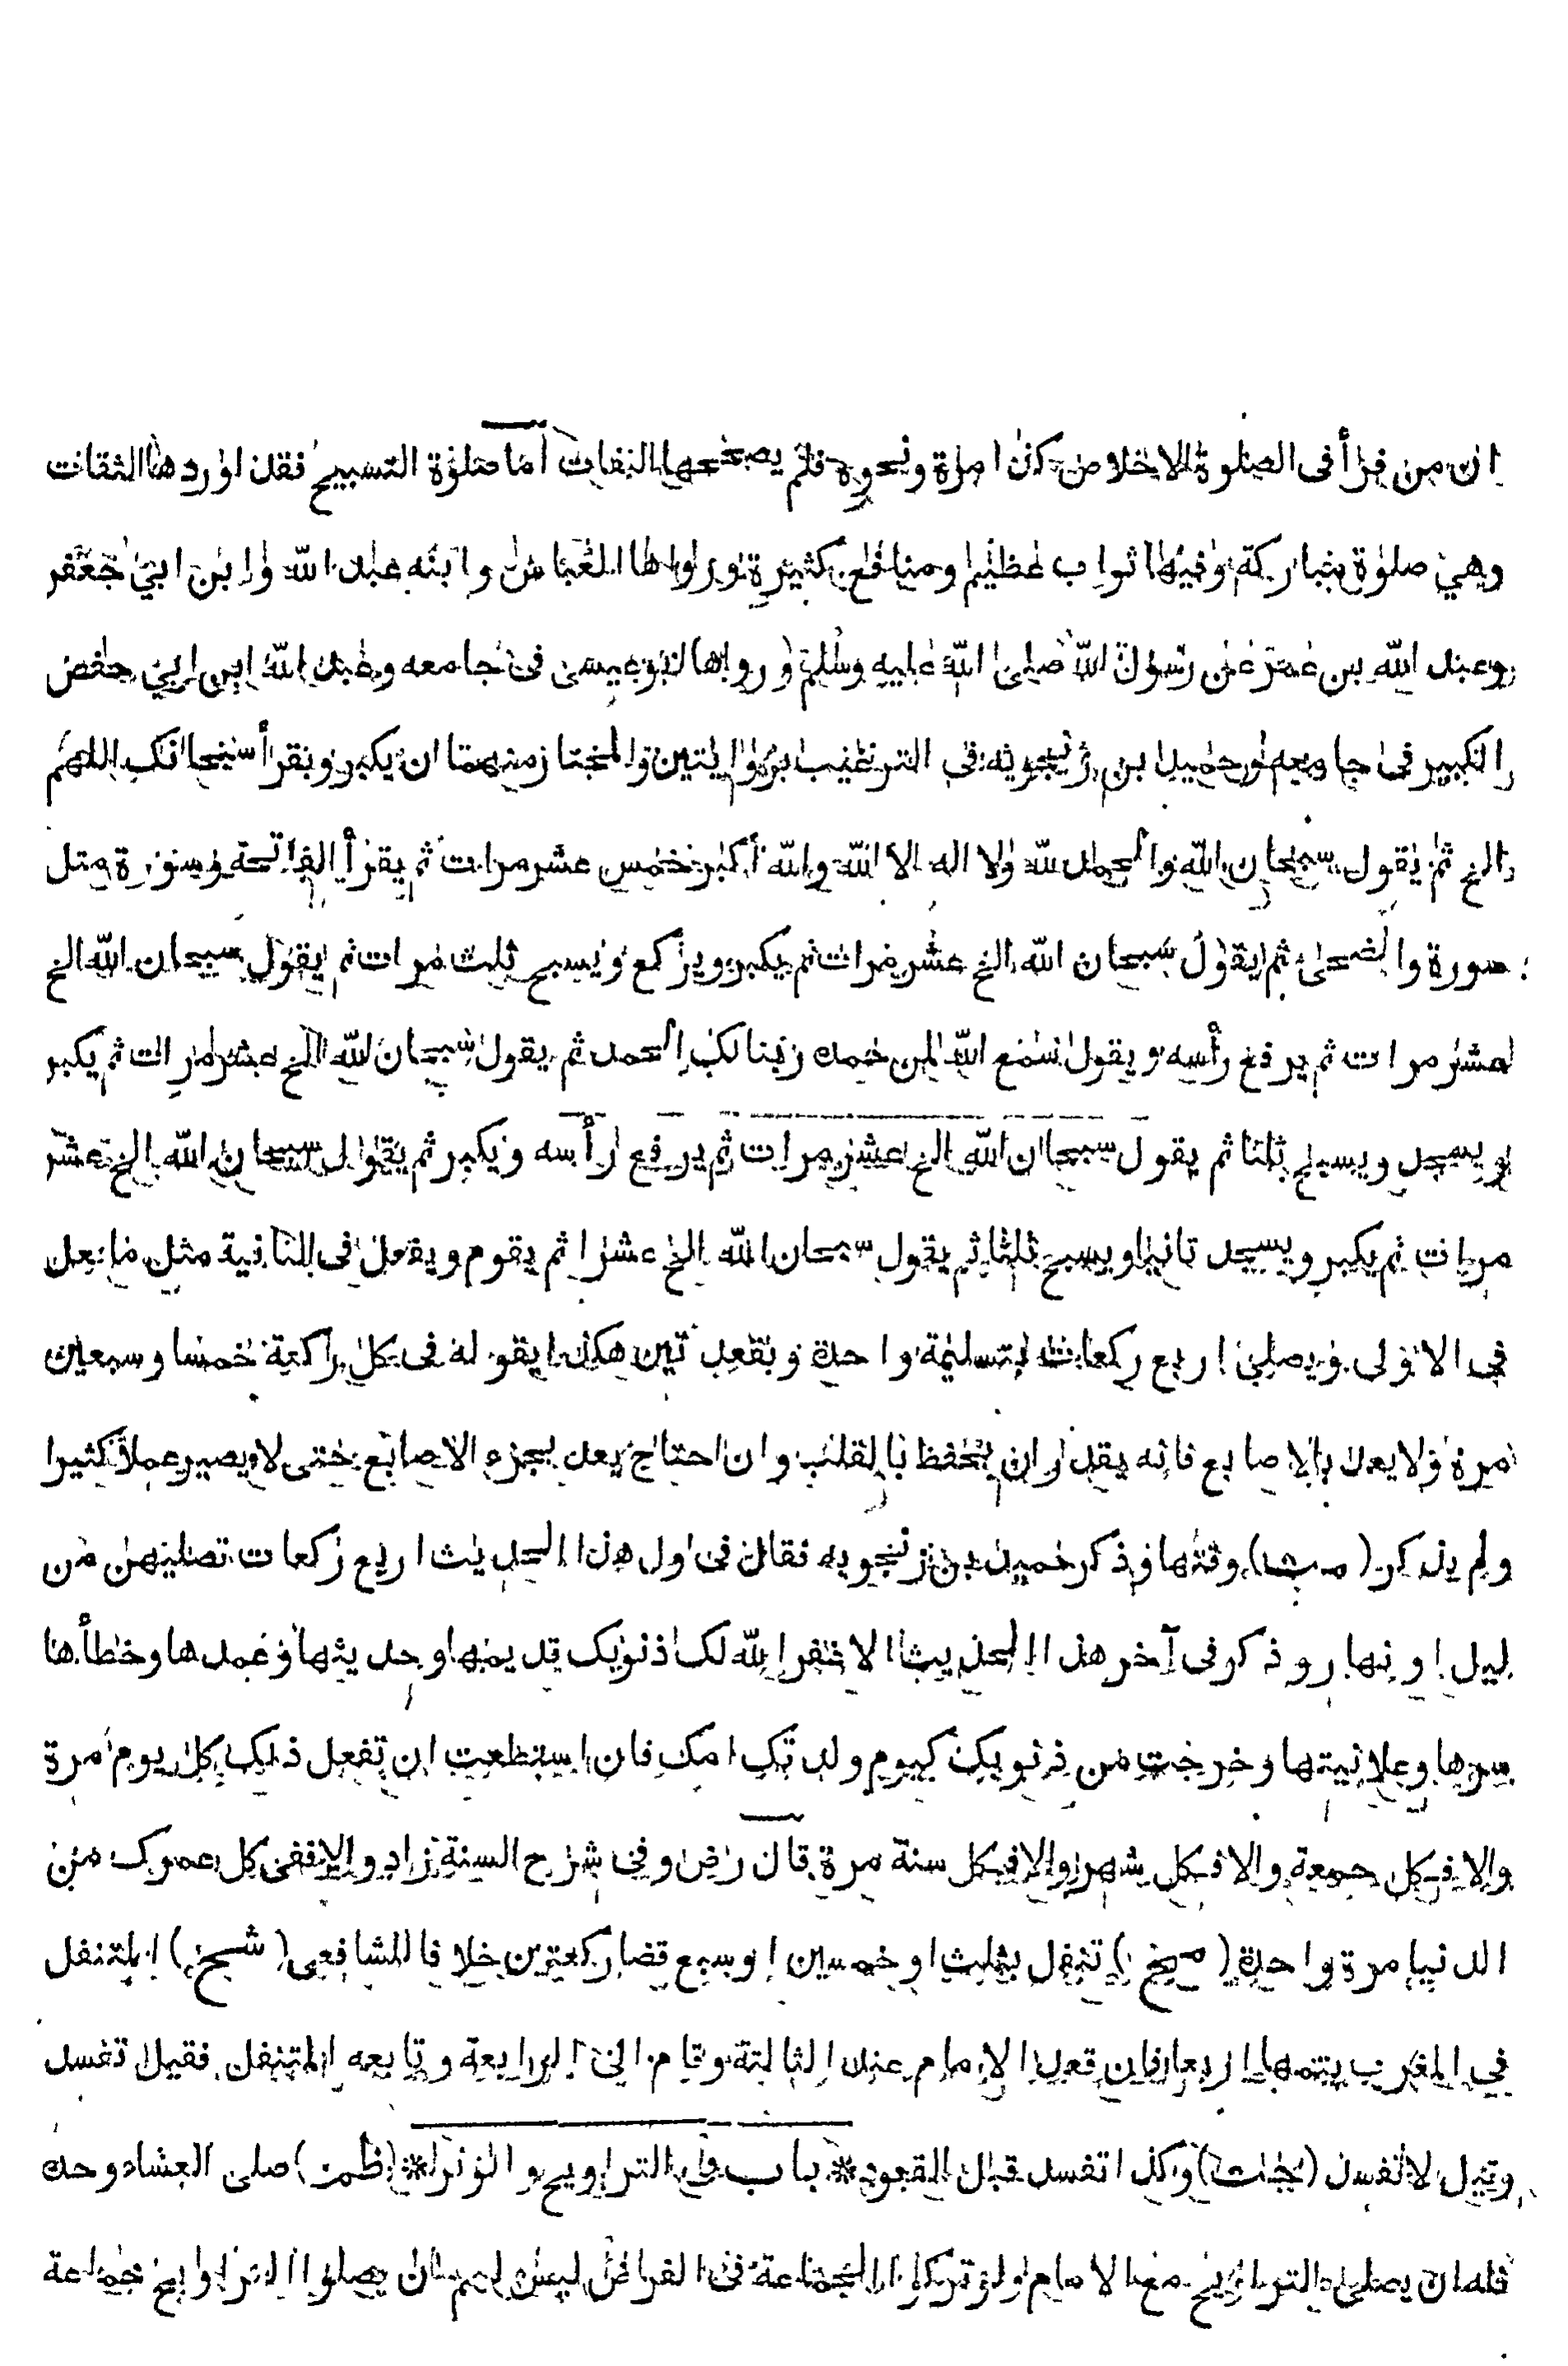 ان من قرأ فى الصلوة الاخلاص كذا مرة ونحوه فلم يصححها الثقات أما صلوة التسبيح فقد اوردها الثقات
وهي صلوة مباركة وفيها ثواب عظيم ومنافع كثيرة ورواها العباس وابنه عبد الله وابن ابي جعفر
وعبد الله بن عمر عن رسول الله صلى الله عليه وسلم ورواها ابو عيسى فى جامعه وعبد الله ابن ابي حفص
الكبير فى جامعه وحميد بن زنجويه فى الترغيب بروايتين والمختار منهما ان يكبر ويقرأ سبحانك اللهم
الخ ثم يقول سبحان الله والحمد لله ولا اله الا الله والله أكبر خمس عشر مرات ثم يقرأ الفاتحة وسورة مثل
سورة والضحى ثم يقول سبحان الله الخ عشر مرات ثم يكبر ويركع ويسبح ثلث مرات ثم يقول سبحان الله الخ
عشر مرات ثم يرفع رأسه ويقول سمع الله لمن حمده ربنا لك الحمد ثم يقول سبحان لله الخ عشر مرات ثم يكبر
ويسجد ويسبح ثلثا ثم يقول سبحان الله الخ عشر مرات ثم يرفع رأسه ويكبر ثم يقول سبحان الله الخ عشر
مرات ثم يكبر ويسجد ثانيا ويسبح ثلثا ثم يقول سبحان الله الخ عشرا ثم يقوم ويفعل فى الثانية مثل ما فعل
فى الاولى ويصلى اربع ركعات بتسليمة واحدة وبقعدتين هكذا يقوله فى كل ركعة خمسا وسبعين
مرة ولا يعد بالاصابع فانه يقدر ان يحفظ بالقلب وان احتاج يعد بجزء الاصابع حتى لا يصير عملا كثيرا
ولم يذكر ( ) وقتها وذكر حميد بن زنجويه فقال فى اول هذا الحديث اربع ركعات تصليهن من
ليل او نهار وذكر فى آخر هذا الحديث الا غفر الله لك ذنوبك قديمها وحديثها وعمدها وخطأها
سرها وعلانيتها وخرجت من ذنوبك كيوم ولدتك امك فان استطعت ان تفعل ذلك كل يوم مرة
والا فى كل جمعة والا فى كل شهر والا فى كل سنة مرة قال رض وفى شرح السنة زاد والا ففى كل عمرك من
الدنيا مرة واحدة ( ) تنفل بثلث او خمس او سبع قضا ركعتين خلافا للشافعى ( شبخ ) المتنفل
فى المغرب يتمها اربعا فان قعد الامام عند الثالثة وقام الى الرابعة وتابعه المتنفل فقيل تفسد
وقيل لا تفسد ( ) وكذا تفسد قبل القعود * باب فى التراويح والوتر * (ظمت) صلى العشاء وحده
فله ان يصلى التراويح مع الامام ولو تركوا الجماعة فى الفرائض ليس لهم ان يصلوا التراويح جماعة